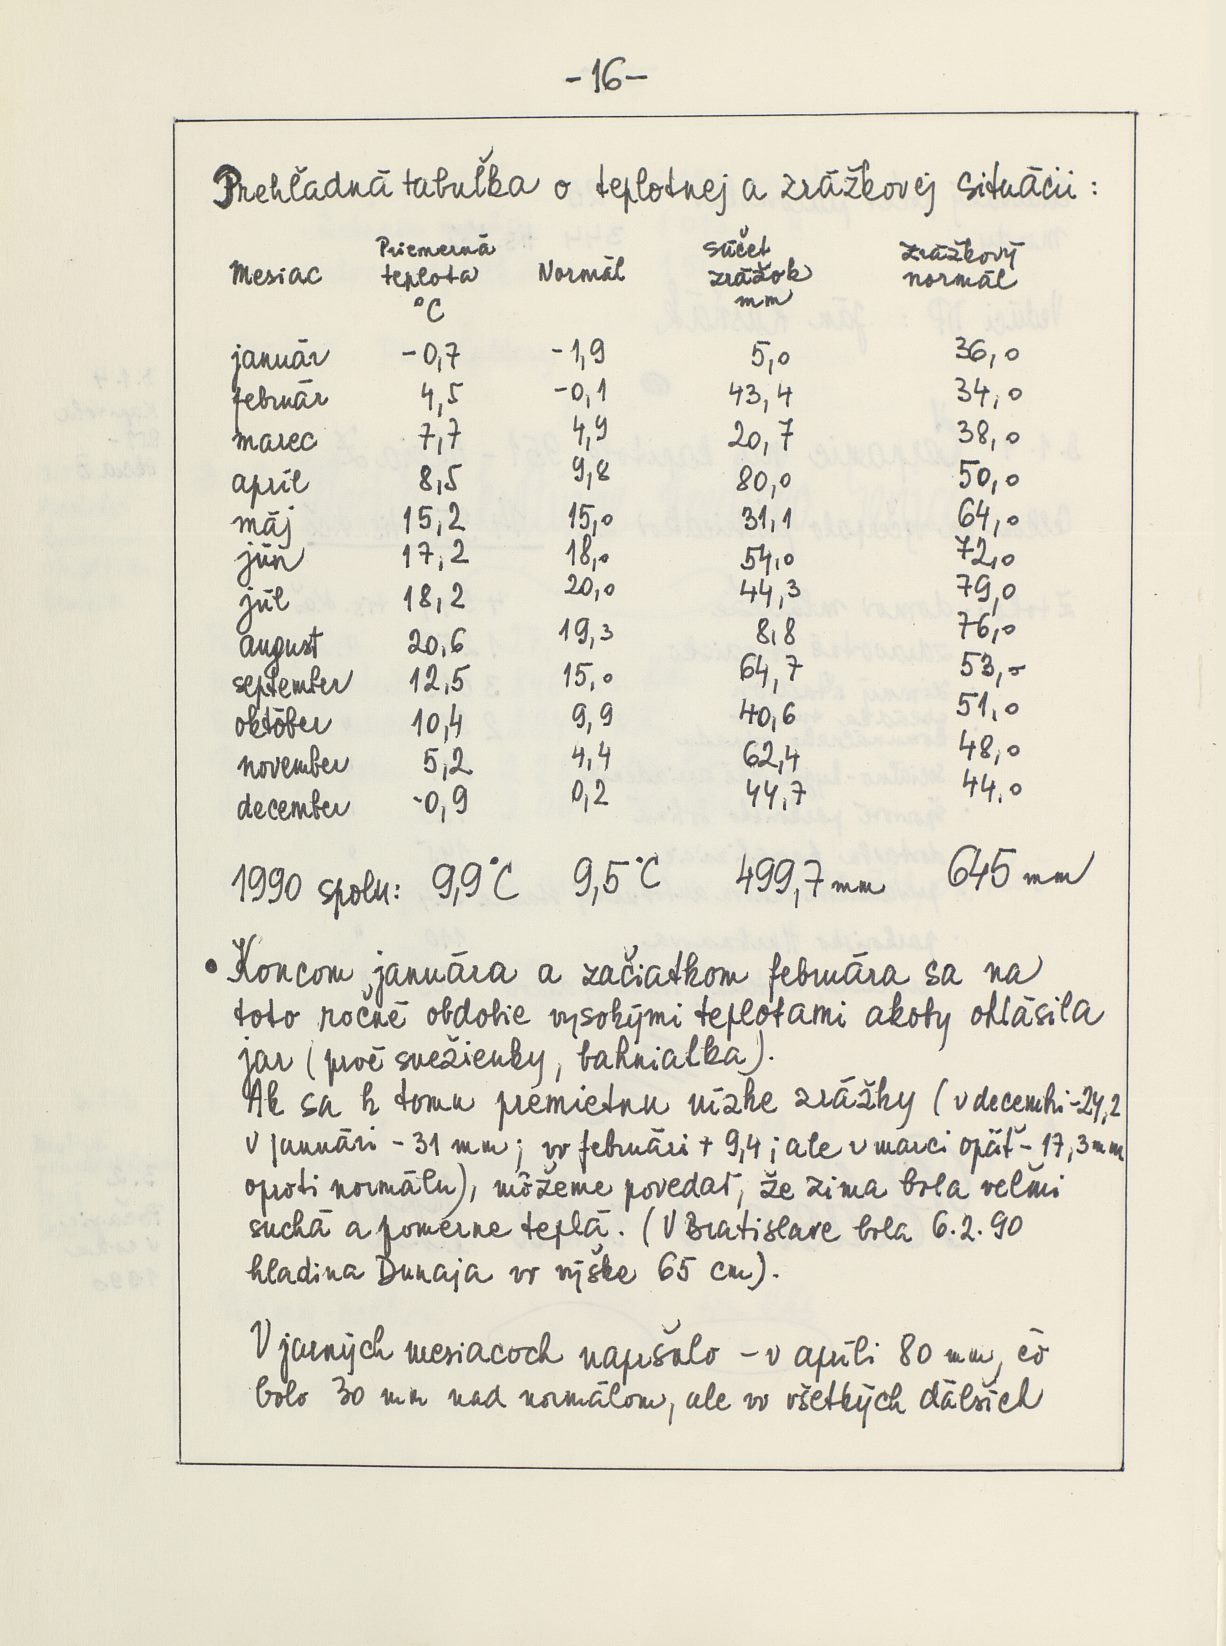 -16-
Prehľadná tabuľka o teplotnej a zrážkovej situácii :
Mesiac Priemerná teplota °C Normál Súčet zrážok mm Zrážkový normál
január -0,7 -1,9 5,0 36,0
február 4,5 -0,1 43,4 34,0
marec 7,7 4,9 20,7 38,0
apríl 8,5 9,8 80,0 50,0
máj 15,2 15,0 31,1 64,0
jún 17,2 18,0 54,0 72,0
júl 18,2 20,0 44,3 79,0
august 20,6 19,3 8,8 76,0
september 12,5 15,0 64,7 53,-
október 10,4 9,9 40,6 51,0
november 5,2 4,4 62,4 48,0
december -0,9 0,2 44,7 44,0
1990 spolu: 9,9°C 9,5°C 499,7 mm 645 mm
• Koncom januára a začiatkom februára sa na
toto ročné obdobie vysokými teplotami akoby ohlásila
jar (prvé snežienky, bahniatka).
Ak sa k tomu premietnu nízke zrážky (v decembri -24,2
v januári - 31 mm ; vo februári + 9,4 ; ale v marci opäť - 17,3 mm
oproti normálu), môžeme povedať, že zima bola veľmi
suchá a pomerne teplá. (V Bratislave bola 6.2.90
hladina Dunaja vo výške 65 cm).
V jarných mesiacoch napršalo - v apríli 80 mm, čo
bolo 30 mm nad normálom, ale vo všetkých ďalších